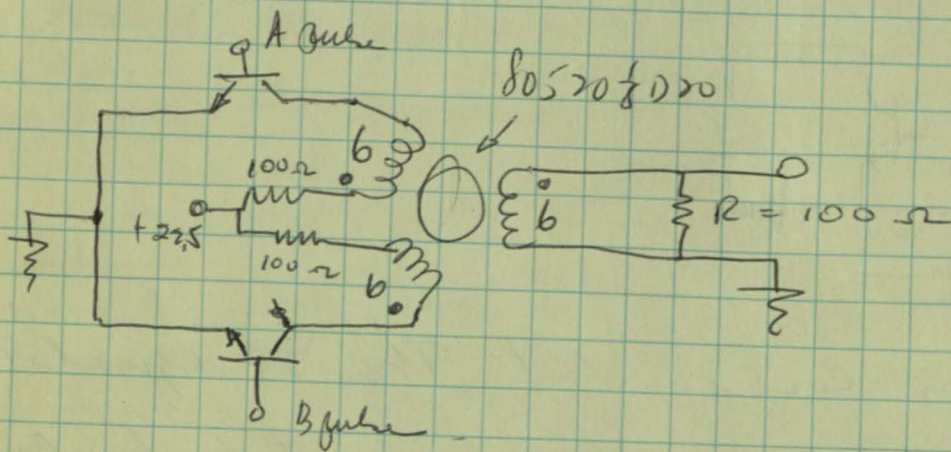 A pulse
80520 1/8 D20
6
100Ω
+22.5
6
R = 100 Ω
100 Ω
6
B pulse